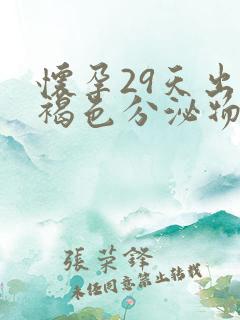 懷孕29天出
褐色分泌物
張榮鋒
未經同意禁止轉載